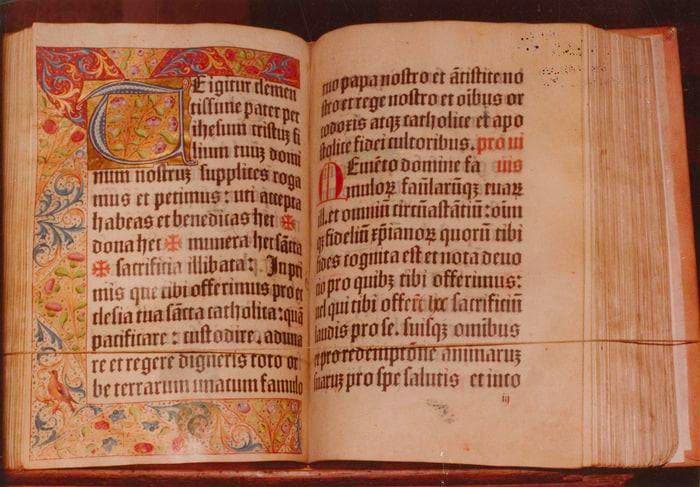 Te igitur clemen
tissime pater per
ihesum cristuz fi
lium tuuz domi
num nostruz supplices roga
mus et petimus : uti accepta
habeas et benedicas hec ✠
dona hec ✠ munera hec sãcta
✠ sacrificia illibata : In pri
mis que tibi offerimus pro ec
clesia tua sãcta catholica : quã
pacificare : custodire . aduna
re et regere digneris toto or
be terrarum unacum famulo
tuo papa nostro et ãtistite no
stro et rege nostro et oĩbus or
todoxis atqz catholice et apo
stolice fidei cultoribus. pro ui
Memẽto domine fa uis
muloꝝ famlarũqz tuaꝝ
ill. et omniũ circũastãtiũ :
qz fideliũ xp̃ianoꝝ quorũ tibi
fides cognita est et nota deuo
tio pro quibz tibi offerimus :
uel qui tibi offerũt hoc sacrificiũ
laudis pro se. suisqz omibus
et pro redemptõne animaruz
suaruz pro spe salutis et inco
iij